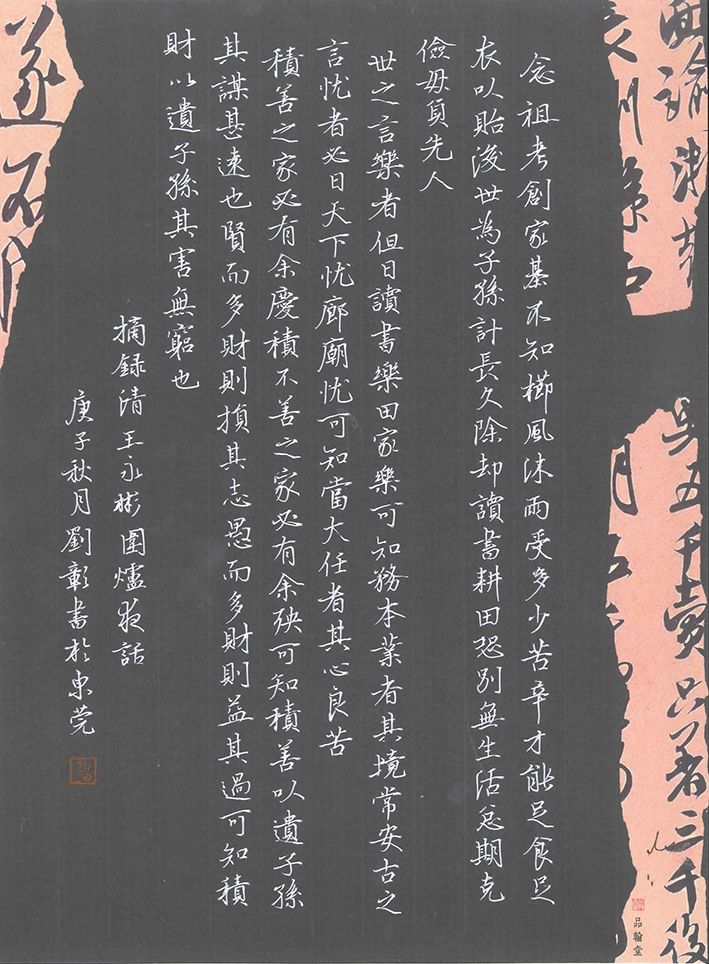 念祖考創家基不知櫛風沐雨受多少苦辛才能足食足
衣以貽後世為子孫計長久除却讀書耕田恐別無生活总期克
儉毋負先人
世之言樂者但曰讀書樂田家樂可知務本業者其境常安古之
言忧者必曰天下忧廊廟忧可知當大任者其心良苦
積善之家必有余慶積不善之家必有余殃可知積善以遺子孫
其謀甚遠也賢而多財則損其志愚而多財則益其過可知積
財以遺子孫其害無窮也
摘録清王永彬圍爐夜話
庚子秋月劉彰書於東莞
品翰堂